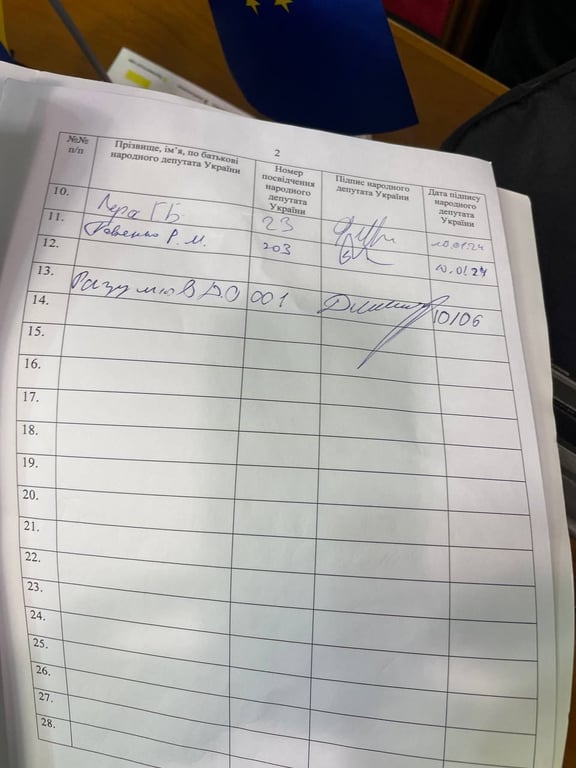 2
№№ п/п
Прізвище, ім’я, по батькові народного депутата України
Номер посвідчення народного депутата України
Підпис народного депутата України
Дата підпису народного депутата України
10. Лера Г Б 23 10.01.24
11. Р. М. 203 10.01.24
12.
13. 001 10/06
14.
15.
16.
17.
18.
19.
20.
21.
22.
23.
24.
25.
26.
27.
28.